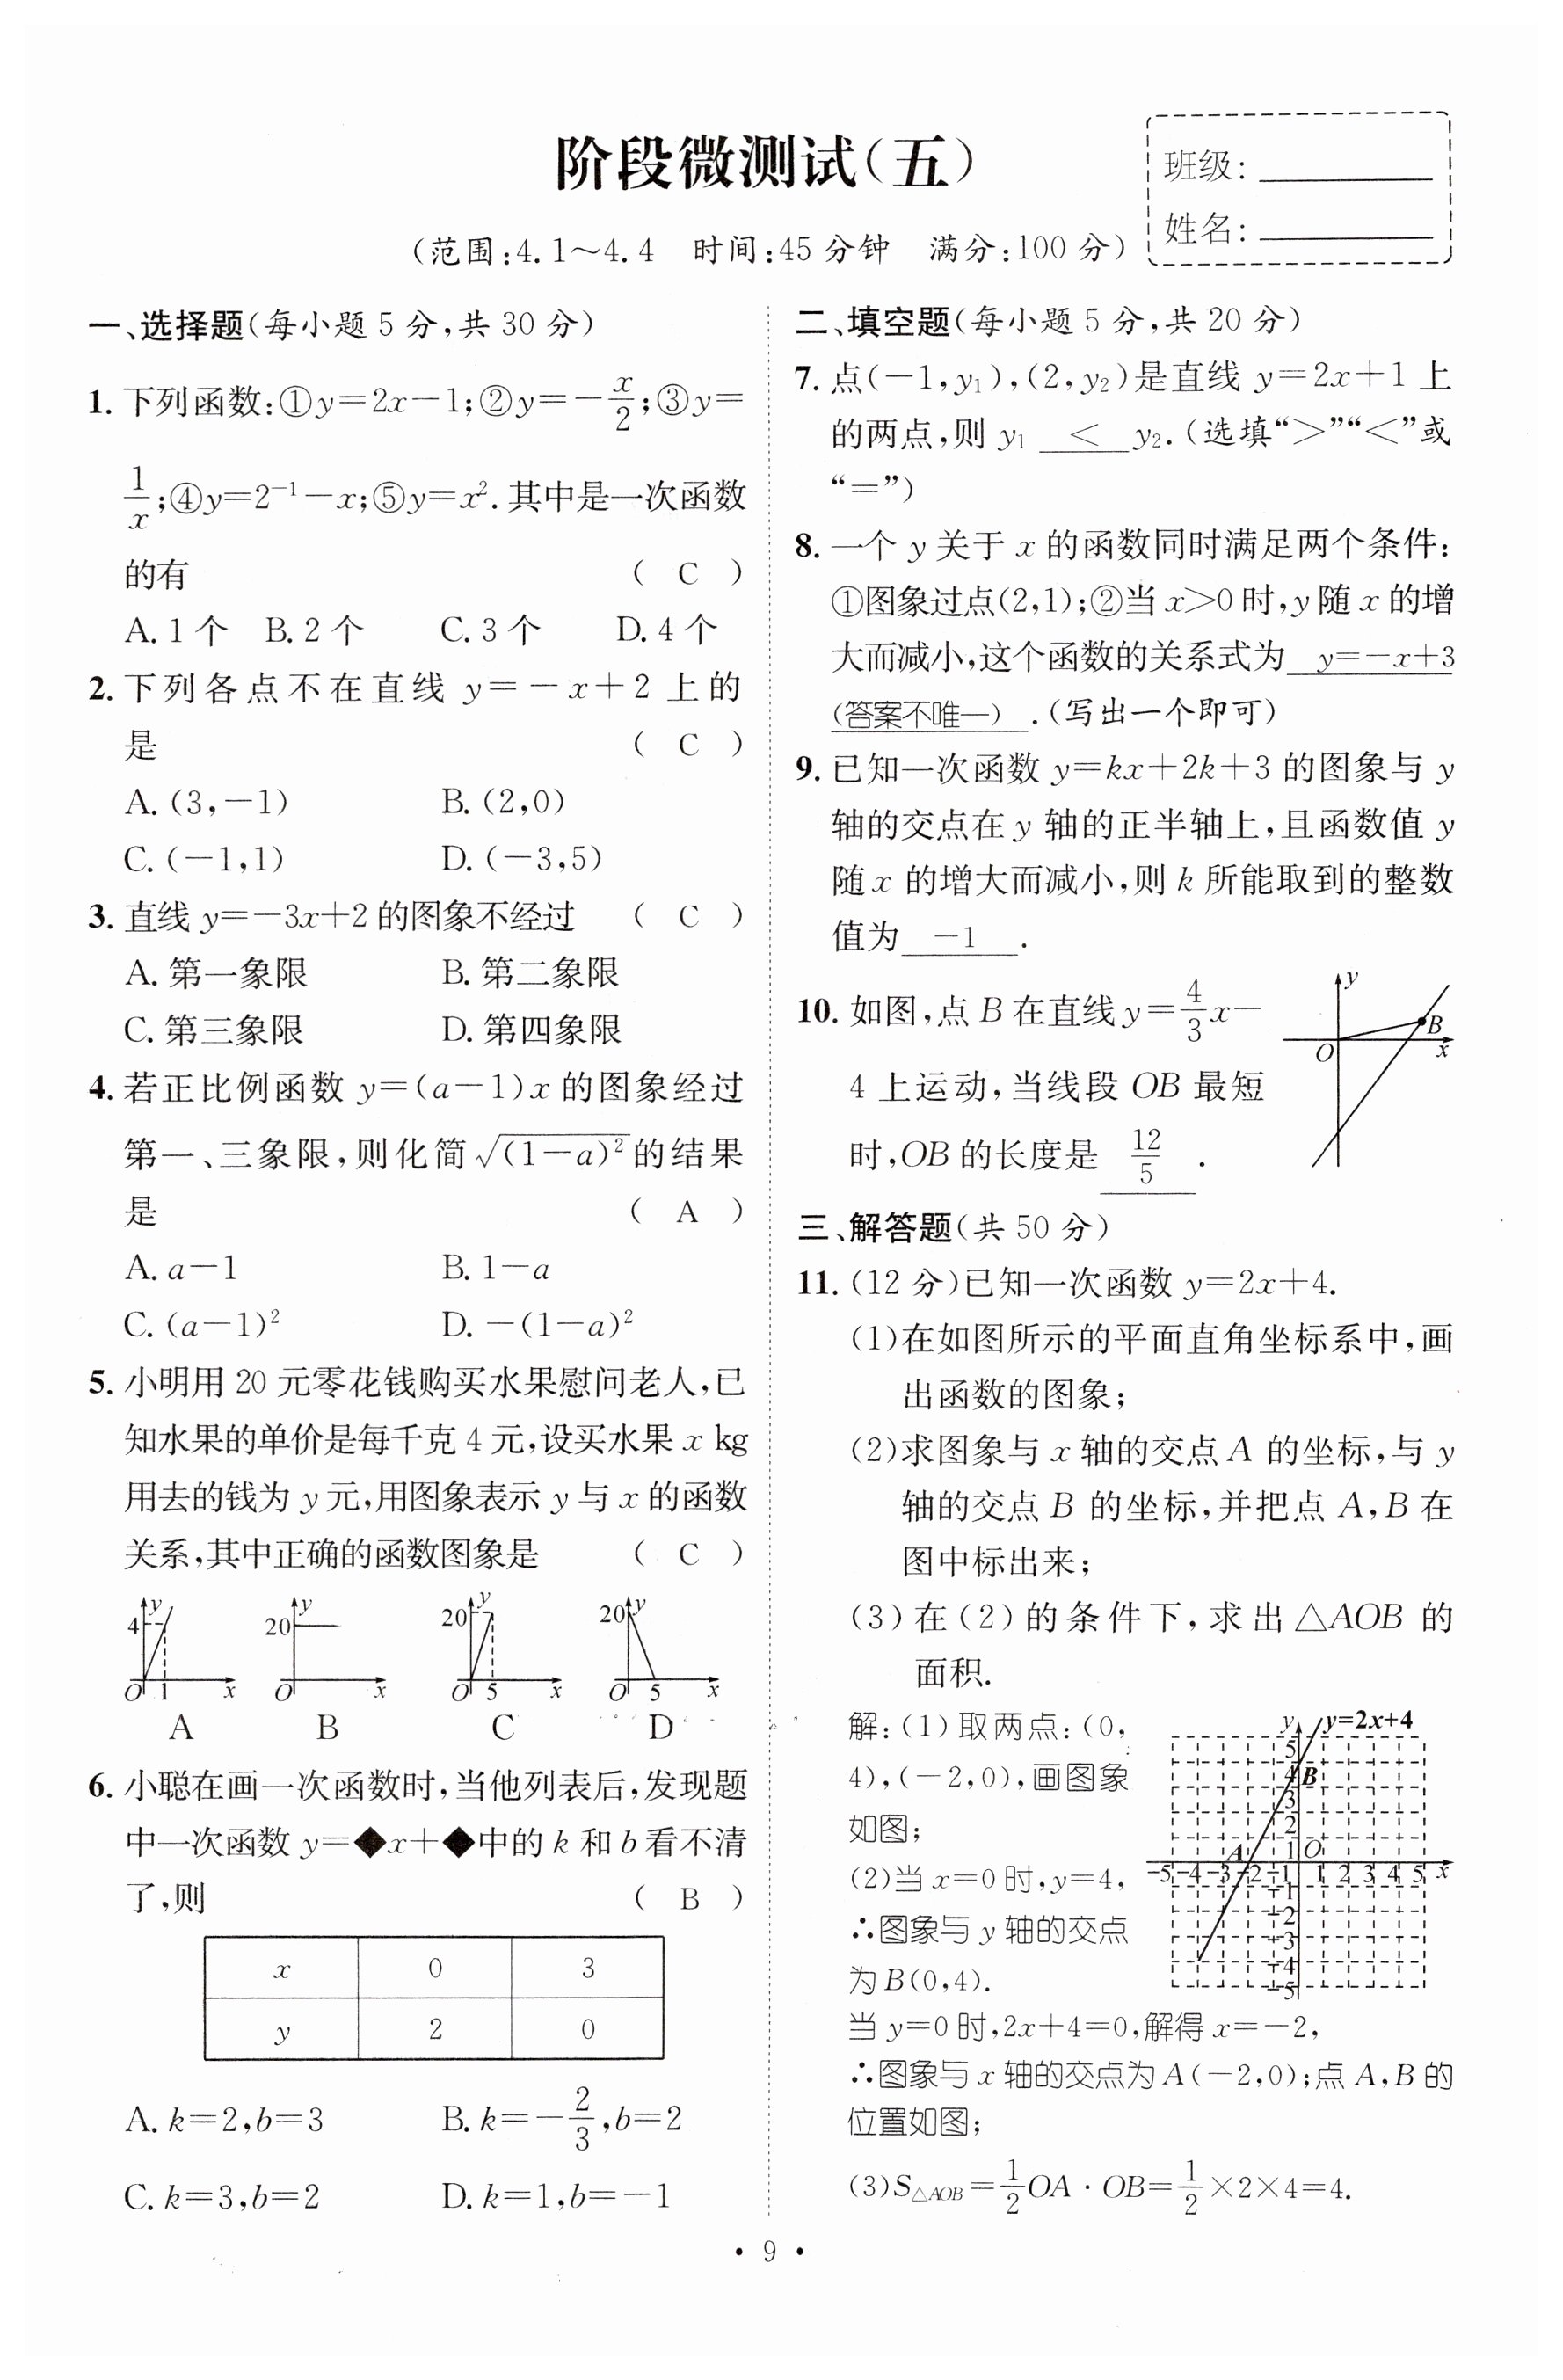 阶段微测试(五)
班级:
姓名:
(范围:4.1～4.4 时间:45分钟 满分:100分)
一、选择题(每小题5分,共30分)
1. 下列函数:①y=2x-1;②y=-x/2;③y=
1/x;④y=2⁻¹-x;⑤y=x².其中是一次函数
的有 ( C )
A. 1个 B. 2个 C. 3个 D. 4个
2. 下列各点不在直线 y=-x+2 上的
是 ( C )
A. (3,-1) B. (2,0)
C. (-1,1) D. (-3,5)
3. 直线 y=-3x+2 的图象不经过 ( C )
A. 第一象限 B. 第二象限
C. 第三象限 D. 第四象限
4. 若正比例函数 y=(a-1)x 的图象经过
第一、三象限,则化简√(1-a)²的结果
是 ( A )
A. a-1 B. 1-a
C. (a-1)² D. -(1-a)²
5. 小明用20元零花钱购买水果慰问老人,已
知水果的单价是每千克4元,设买水果 x kg
用去的钱为 y 元,用图象表示 y 与 x 的函数
关系,其中正确的函数图象是 ( C )
y 4 O 1 x
y 20 O x
y 20 O 5 x
y 20 O 5 x
A B C D
6. 小聪在画一次函数时,当他列表后,发现题
中一次函数 y=◆x+◆中的 k 和 b 看不清
了,则 ( B )
x 0 3
y 2 0
A. k=2,b=3 B. k=-2/3,b=2
C. k=3,b=2 D. k=1,b=-1
二、填空题(每小题5分,共20分)
7. 点(-1,y₁),(2,y₂)是直线 y=2x+1 上
的两点,则 y₁ < y₂.(选填“>”“<”或
“=”)
8. 一个 y 关于 x 的函数同时满足两个条件:
①图象过点(2,1);②当 x>0 时,y 随 x 的增
大而减小,这个函数的关系式为 y=-x+3
(答案不唯一) .(写出一个即可)
9. 已知一次函数 y=kx+2k+3 的图象与 y
轴的交点在 y 轴的正半轴上,且函数值 y
随 x 的增大而减小,则 k 所能取到的整数
值为 -1 .
10. 如图,点 B 在直线 y=4/3x-
4 上运动,当线段 OB 最短
时,OB 的长度是 12/5 .
y B O x
三、解答题(共50分)
11. (12分)已知一次函数 y=2x+4.
(1)在如图所示的平面直角坐标系中,画
出函数的图象;
(2)求图象与 x 轴的交点 A 的坐标,与 y
轴的交点 B 的坐标,并把点 A,B 在
图中标出来;
(3)在(2)的条件下,求出△AOB 的
面积.
解:(1)取两点:(0,
4),(-2,0),画图象
如图;
(2)当 x=0 时,y=4,
∴图象与 y 轴的交点
为 B(0,4).
y y=2x+4
5
4 B
3
2
A 1 O
-5 -4 -3 -2 -1 1 2 3 4 5 x
-1
-2
-3
-4
-5
当 y=0 时,2x+4=0,解得 x=-2,
∴图象与 x 轴的交点为 A(-2,0);点 A,B 的
位置如图;
(3)S△AOB=1/2OA·OB=1/2×2×4=4.
• 9 •